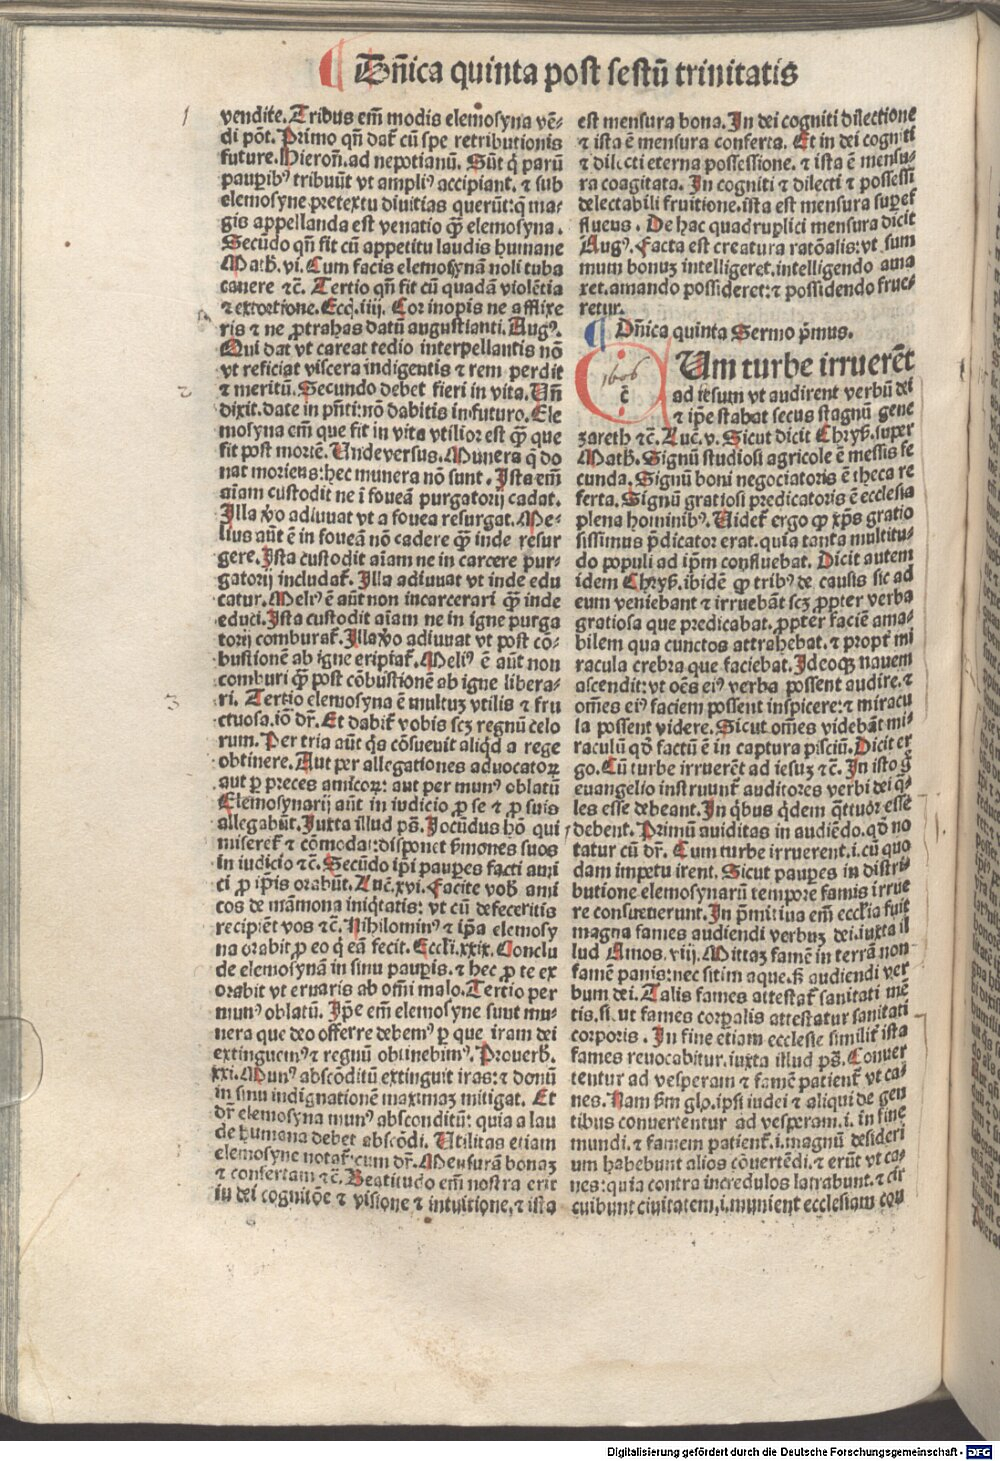 Dñica quinta post festũ trinitatis
1
vendite. Tribus em̃ modis elemosyna vẽ-
di põt. Primo qñ dať cũ spe retributionis
future. Hieroñ. ad nepotianũ. Sũt q̇ parũ
pauꝑibꝰ tribuũt vt ampliꝰ accipiant. ⁊ sub
elemosyne pretextu diuitias querũt: q̄ ma-
gis appellanda est venatio q̄ꝫ elemosyna.
Secũdo qñ fit cũ appetitu laudis humane
Math. vi. Cum facis elemosynã noli tuba
canere ⁊c̃. Tertio qñ fit cũ quadã violẽtia
⁊ extortione. Ecci. iiii. Cor inopis ne afflixe
ris ⁊ ne ꝓtrahas datũ augustianti. Augꝰ.
Qui dat vt careat tedio interpellantis nõ
vt reficiat viscera indigentis ⁊ rem perdit
2
⁊ meritũ. Secundo debet fieri in vita. Vñ
dixit. date in pñti: nõ dabitis in futuro. Ele
mosyna em̃ que fit in vita vtilior est q̄ꝫ que
fit post mortẽ. Unde versus. Munera q̄ do
nat moriens: hec munera nõ sunt. Ista em̃
aĩam custodit ne ĩ foueã purgatorij cadat.
Illa v̊o adiuuat vt a fouea resurgat. Me-
lius aũt ẽ in foueã nõ cadere q̄ꝫ inde resur
gere. Ista custodit aĩam ne in carcere pur-
gatorij includať. Illa adiuuat vt inde edu
catur. Meliꝰ ẽ aũt non incarcerari q̄ꝫ inde
educi. Ista custodit aĩam ne in igne purga
torij comburať. Illa v̊o adiuuat vt post cõ-
bustionẽ ab igne eripiať. Meliꝰ ẽ aũt non
comburi q̄ꝫ post cõbustionẽ ab igne libera-
3
ri. Tertio elemosyna ẽ multuꝫ vtilis ⁊ fru
ctuosa. iõ dr̃. Et dabiť vobis scꝫ regnũ celo
rum. Per tria aũt q̇s cõsueuit aliqd̃ a rege
obtinere. Aut per allegationes aduocatoꝝ
aut ꝑ preces amicoꝝ: aut per munꝰ oblatũ
Elemosynarij aũt in iudicio ꝓ se ⁊ ꝓ suis
allegabũt. Juxta illud ps̃. Jocũdus hõ qui
misereť ⁊ cõmodat: disponet p̃mones suos
in iudicio ⁊c̃. Secũdo ip̃i pauꝑes facti ami
ci ꝓ ip̃is orabũt. Luc̃. xvi. Facite vob̃ ami
cos de mãmona iniq̇tatis: vt cũ defeceritis
recipiẽt vos ⁊c̃. Nihilominꝰ ⁊ ip̃a elemosy
na orabit ꝓ eo q̇ eã fecit. Eccl̃i. xxix. Conclu
de elemosynã in sinu pauꝑis. ⁊ hec ꝓ te ex
orabit vt eruaris ab om̃i malo. Tertio per
munꝰ oblatũ. Ip̃e em̃ elemosyne sunt mu-
nera que deo offerre debemꝰ ꝑ que iram dei
extinguemꝰ ⁊ regnũ obtinebimꝰ. Prouerb̃.
xxi. Munꝰ abscõditũ extinguit iras: ⁊ donũ
in sinu indignationẽ maximaꝫ mitigat. Et
dr̃ elemosyna munꝰ absconditũ: quia a lau
de humana debet abscõdi. Utilitas etiam
elemosyne notať cum dr̃. Mensurã bonaꝫ
⁊ confertam ⁊c̃. Beatitudo em̃ nostra erit
in dei cognitõe ⁊ visione ⁊ intuitione, ⁊ ista
est mensura bona. In dei cogniti dilectione
⁊ ista ẽ mensura conferta. Et in dei cogniti
⁊ dilecti eterna possessione. ⁊ ista ẽ mensu-
ra coagitata. In cogniti ⁊ dilecti ⁊ possessi
delectabili fruitione. ista est mensura suꝑef
fluens. De hac quadruplici mensura dicit
Augꝰ. Facta est creatura ratõalis: vt sum
mum bonuꝫ intelligeret. intelligendo ama
ret. amando possideret: ⁊ possidendo frue-
retur.
Dñica quinta Sermo p̃mus.
CUm turbe irruerẽt
1606
c̃
ad iesum vt audirent verbũ dei
⁊ ip̃e stabat secus stagnũ gene
zareth ⁊c̃. Luc̃. v. Sicut dicit Chryš. super
Math. Signũ studiosi agricole ẽ messis fe
cunda. Signũ boni negociatoris ẽ theca re
ferta. Signũ gratiosi predicatoris ẽ ecclesia
plena hominibꝰ. Uideť ergo ꝙ xp̃s gratio
sissimus p̃dicator erat. quia tanta multitu-
do populi ad ip̃m confluebat. Dicit autem
idem Chryš. ibidẽ ꝙ tribꝰ de causis sic ad
eum veniebant ⁊ irruebãt scꝫ ꝓpter verba
gratiosa que predicabat. ꝓpter faciẽ ama-
bilem qua cunctos attrahebat. ⁊ propť mi
racula crebra que faciebat. Ideoqꝫ nauem
ascendit: vt oẽs eiꝰ verba possent audire. ⁊
om̃es eiꝰ faciem possent inspicere: ⁊ miracu
la possent videre. Sicut om̃es videbãt mi-
raculũ qd̃ factũ ẽ in captura pisciũ. Dicit er
go. Cũ turbe irruerẽt ad iesuꝫ ⁊c̃. In isto g̃
euangelio instruunť auditores verbi dei q̃-
les esse debeant. In q̇bus q̇dem q̃ttuor esse
debent. Primũ auiditas in audiẽdo. qd̃ no
tatur cũ dr̃. Cum turbe irruerent. i. cũ quo
dam impetu irent. Sicut pauꝑes in distri-
butione elemosynarũ tempore famis irrue
re consueuerunt. In p̃mitiua em̃ ecclĩa fuit
magna fames audiendi verbuꝫ dei. iuxta il
lud Amos. viij. Mittaꝫ famẽ in terrã non
famẽ panis: nec sitim aque. sꝫ audiendi ver
bum dei. Talis fames attestať sanitati mẽ
tis. si. ut fames corꝑalis attestatur sanitati
corporis. In fine etiam ecclesie similiť ista
fames reuocabitur. iuxta illud ps̃. Conuer
tentur ad vesperam ⁊ famẽ patienť vt ca-
nes. Nam sm̃ glo. ipsi iudei ⁊ aliqui de gen
tibus conuertentur ad vesperam. i. in fine
mundi. ⁊ famem patienť. i. magnũ desideri
um habebunt alios cõuertẽdi. ⁊ erũt vt ca-
nes: quia contra incredulos latrabunt. ⁊ cir
cuibunt ciuitatem, i. munient ecclesiam con
Digitalisierung gefördert durch die Deutsche Forschungsgemeinschaft - DFG